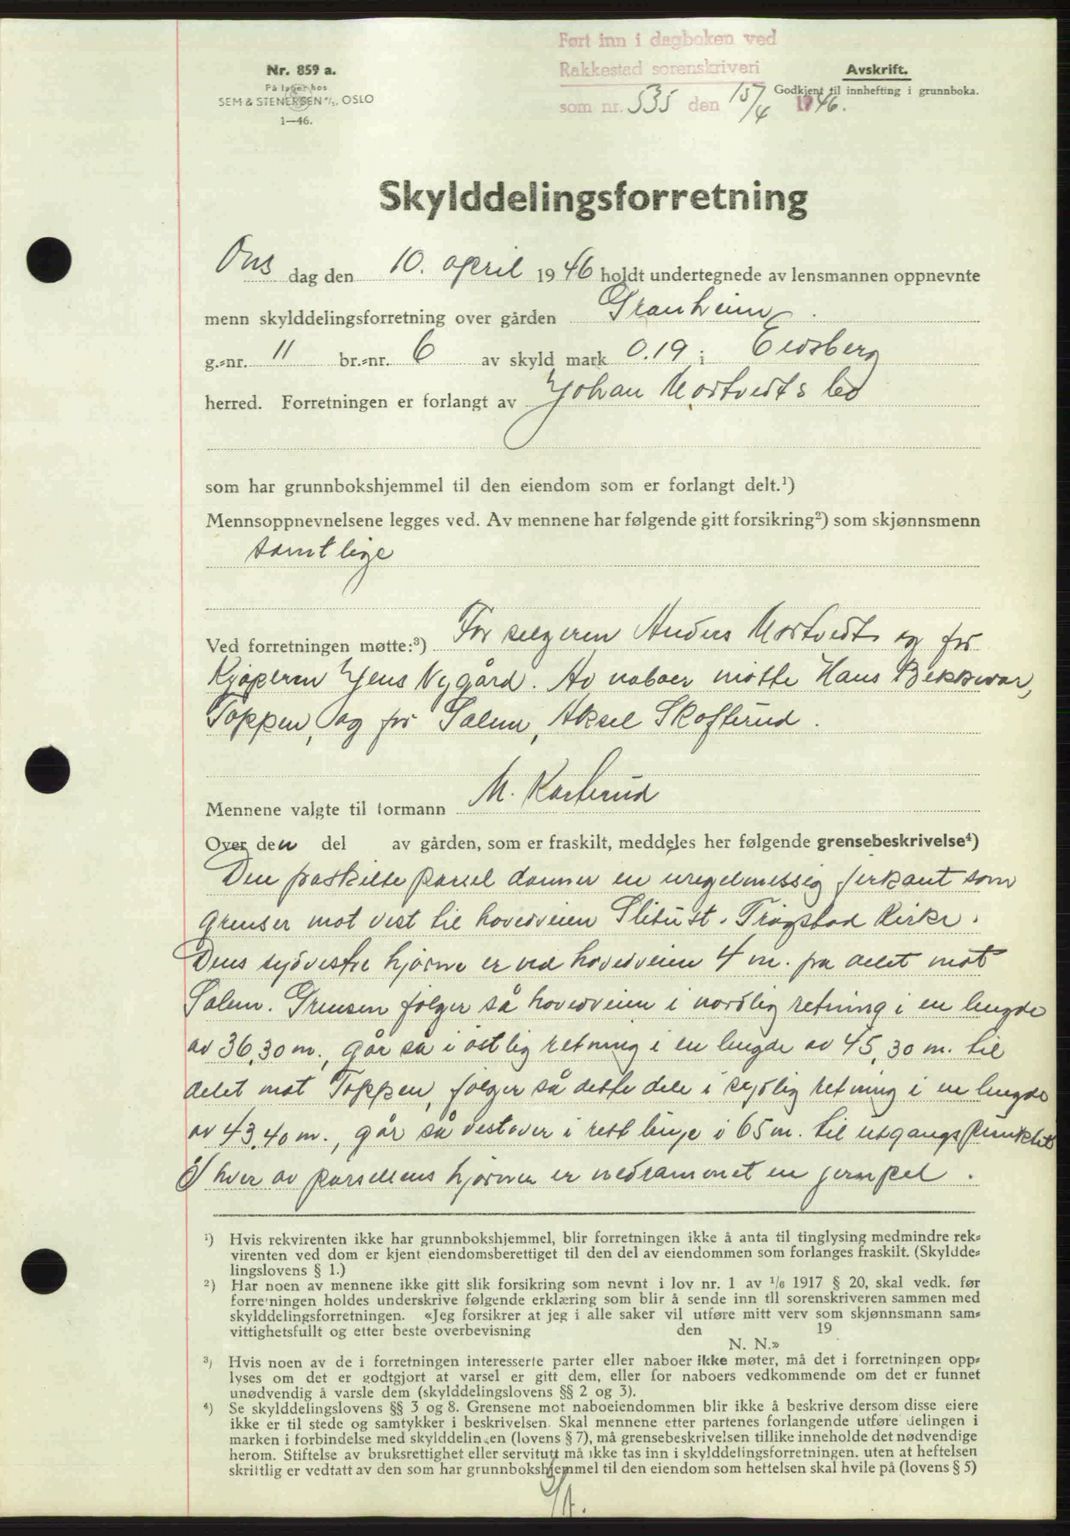 Ført inn i dagboken ved
Rakkestad sorenskriveri
som nr. 535 den 15/4 1946.
Nr. 859 a.
På lager hos
SEM & STENERSEN A/S, OSLO
1—46.
Avskrift.
Godkjent til innhefting i grunnboka.
Skylddelingsforretning
Ons dag den 10. april 1946 holdt undertegnede av lensmannen oppnevnte
menn skylddelingsforretning over gården Granheim.
g.-nr. 11 br.-nr. 6 av skyld mark 0.19 i Eidsberg
herred. Forretningen er forlangt av Johan Mortvedts bo
som har grunnbokshjemmel til den eiendom som er forlangt delt.¹)
Mennsoppnevnelsene legges ved. Av mennene har følgende gitt forsikring²) som skjønnsmenn
samtlige
Ved forretningen møtte:³) For selgeren Anders Mortvedt og for
Kjøperen Jens Nygård. Av naboer møtte Hans Bekkevar,
Toppen, og for Solum, Aksel Skofterud.
Mennene valgte til formann M. Karterud
Over den del av gården, som er fraskilt, meddeles her følgende grensebeskrivelse⁴)
Den fraskilte parsel danner en uregelmessig firkant som
grenser mot vest til hovedveien Slitu st. - Trøgstad Kirke.
Dens sydvestre hjørne er ved hovedveien 4 m. fra delet mot
Solum. Grensen følger så hovedveien i nordlig retning i en lengde
av 36,30 m., går så i østlig retning i en lengde av 45,30 m. til
delet mot Toppen, følger så dette dele i sydlig retning i en lengde
av 43,40 m., går så vestover i rett linje i 65 m. til utgangspunktet
I hver av parsellens hjørner er nedrammet en jernpel.
¹) Hvis rekvirenten ikke har grunnbokshjemmel, blir forretningen ikke å anta til tinglysing medmindre rek-
virenten ved dom er kjent eiendomsberettiget til den del av eiendommen som forlanges fraskilt. (Skyldde-
lingslovens § 1.)
²) Har noen av mennene ikke gitt slik forsikring som nevnt i lov nr. 1 av 1/6 1917 § 20, skal vedk. før
forretningen holdes underskrive følgende erklæring som blir å sende inn til sorenskriveren sammen med
skylddelingsforretningen. «Jeg forsikrer at jeg i alle saker vil utføre mitt verv som skjønnsmann sam-
vittighetsfullt og etter beste overbevisning den 19
N. N.»
³) Hvis noen av de i forretningen interesserte parter eller naboer ikke møter, må det i forretningen opp-
lyses om det er godtgjort at varsel er gitt dem, eller for naboers vedkommende om det er funnet
unødvendig å varsle dem (skylddelingslovens §§ 2 og 3).
⁴) Se skylddelingslovens §§ 3 og 8. Grensene mot naboeiendommen blir ikke å beskrive dersom disse eiere
ikke er til stede og samtykker i beskrivelsen. Skal mennene etter partenes forlangende utføre delingen i
marken i forbindelse med skylddelingen (lovens § 7), må grensebeskrivelsen tillike inneholde det nødvendige
herom. Stiftelse av bruksrettighet eller servitutt må ikke tas inn i skylddelingsforretningen, uten at heftelsen
skriftlig er vedtatt av den som har grunnbokshjemmel til den eiendom som heftelsen skal hvile på (lovens § 5)